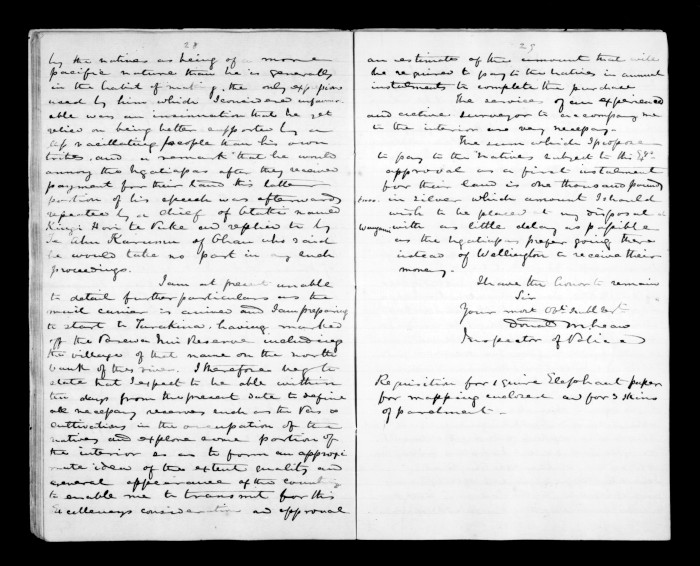 28
by the natives as being of a more
pacific nature than he is generally
in the habit of making, the only expression
used by him which I considered unfavor
able was an insinuation that he yet
relied on being better supported by a
less vacillating people than his own
tribes, and a remark that he would
annoy the Ngatiapas after they received
payment for their land this latter
portion of his speech was afterwards
repeated by a chief of Otaki named
Kingi Hori te Puke and replied to by
Te Ahu Karamu of Ohau who said
he would take no part in any such
proceedings.
I am at present unable
to detail further particulars as the
mail carrier is arrived and I am preparing
to start to Turakina, having marked
off the Parewa Nui Reserve including
the village of that name on the north
bank of the river. I therefore beg to
state that I expect to be able within
ten days from the present date to define
all necessary reserves such as the Pas &
cultivations in the occupation of the
natives and explore some portion of
the interior so as to form an approxi
mate idea of the extent quality and
general appearance of the country
to enable me to transmit for His
Excellency's consideration and approval
29
an estimate of the amount that will
be required to pay to the Natives in annual
instalments to complete the purchase
The services of an experienced
and active surveyor to accompany me
to the interior are very necessary.
The sum which I propose
to pay to the Natives subject to His
approval as a first instalment
for their land is one thousand pounds
in silver which amount I should
wish to be placed at my disposal at
Wanganui with as little delay as possible
as the Ngatiapas prefer going there
instead of Wellington to receive their
money.
I have the honor to remain
Sir
Your most Obt. Humble Servt.
Donald McLean
Inspector of Police
Requisition for 1 quire Elephant paper
for mapping enclosed and for 3 skins
of parchment.